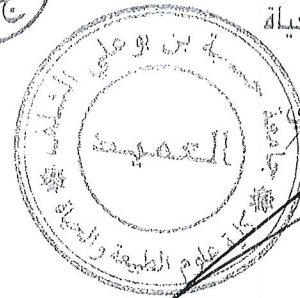 ياة
جامعة حسيبة بن بوعلي الشلف
العميد
كلية علوم الطبيعة والحياة